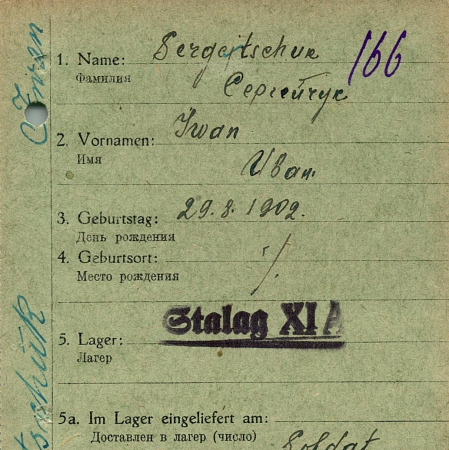 1. Name: Sergejtschuk 166
Фамилия Сергейчук
2. Vornamen: Iwan
Имя Иван
3. Geburtstag: 29.8.1902.
День рождения
4. Geburtsort:
Место рождения
5. Lager: Stalag XI A
Лагер
5a. Im Lager eingeliefert am:
Доставлен в лагер (число)
Soldat
Iwan